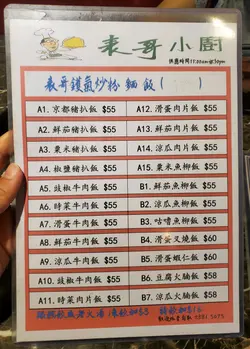 表哥小廚
供應時間11:00am-8:30pm
表哥鑊氣炒粉麵飯( )
A1. 京都豬扒飯 $55
A12. 滑蛋肉片飯 $55
A2. 鮮茄豬扒飯 $55
A13. 鮮茄肉片飯 $55
A3. 粟米豬扒飯 $55
A14. 涼瓜肉片飯 $55
A4. 椒鹽豬扒飯 $55
A15. 粟米魚柳飯 $55
A5. 豉椒牛肉飯 $55
B1. 鮮茄魚柳飯 $55
A6. 鮮茄牛肉飯 $55
B2. 涼瓜魚柳飯 $55
A7. 滑蛋牛肉飯 $55
B3. 咕嚕魚柳飯 $55
A8. 時菜牛肉飯 $55
B4. 滑蛋叉燒飯 $60
A9. 涼瓜牛肉飯 $55
B5. 滑蛋蝦仁飯 $60
A10. 豉椒肉片飯 $55
B6. 豆腐火腩飯 $55
A11. 時菜肉片飯 $55
B7. 涼瓜火腩飯 $55
跟餐飲或者火湯 凍飲加$3